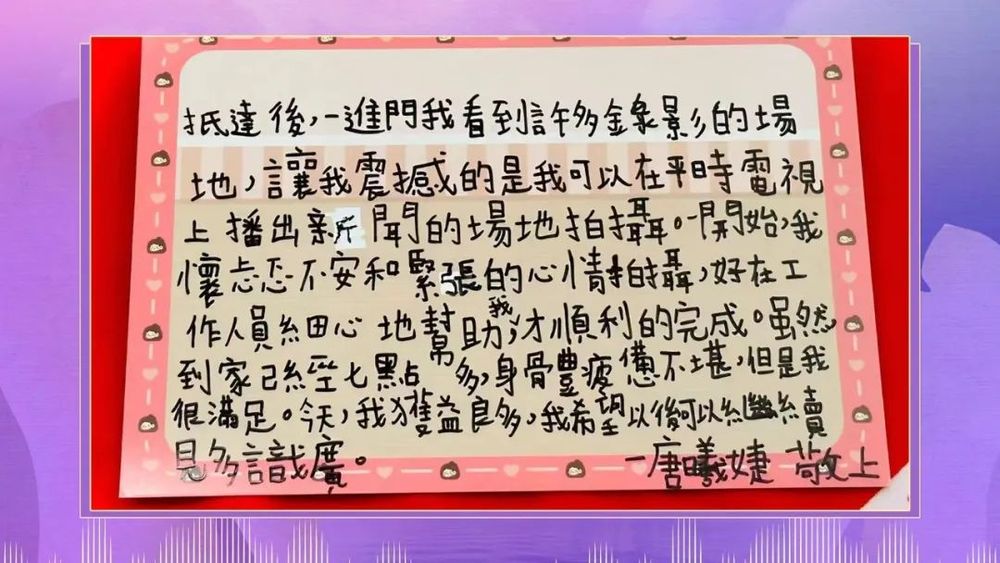 抵達後,一進門我看到許多錄影的場
地,讓我震撼的是我可以在平時電視
上播出新聞的場地拍攝。一開始,我
懷忐忑不安和緊張的心情拍攝,好在工
作人員細心地幫助我,才順利的完成。雖然
到家已經七點多,身體疲憊不堪,但是我
很滿足。今天,我獲益良多,我希望以後可以繼續
見多識廣。 一唐曦婕 敬上